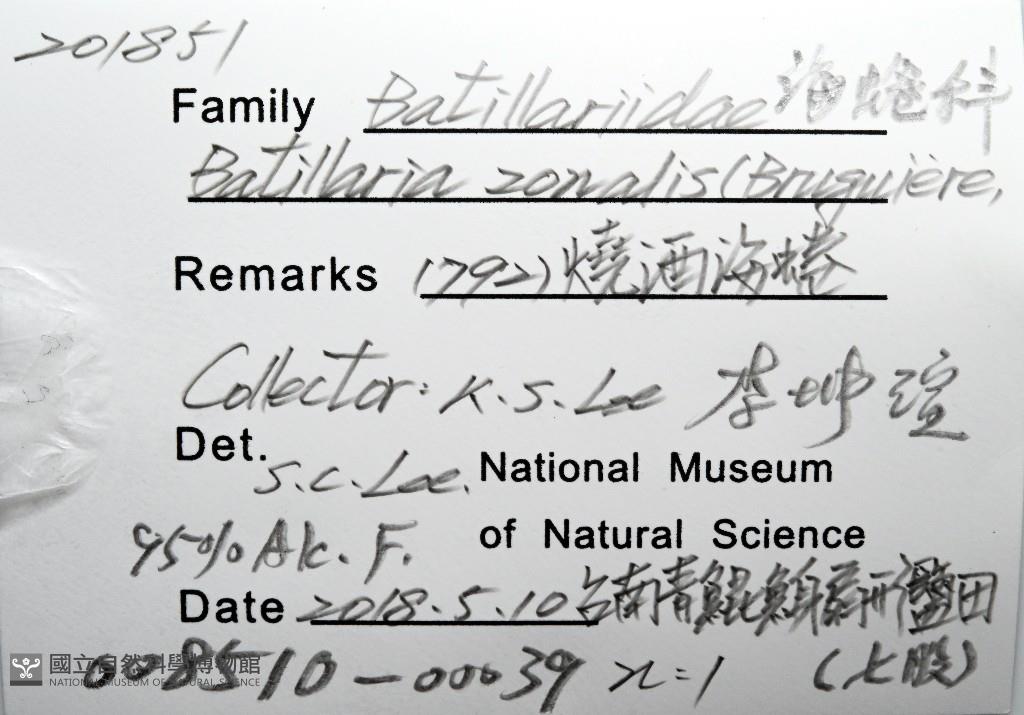 2018 51
Family Batillariidae 海蜷科
Batillaria zonalis (Bruguière,
Remarks 1792) 燒酒海蜷
Collector: K.S. Lee 李坤瑄
Det. S.C. Lee. National Museum
95% Alc. F. of Natural Science
Date 2018.5.10 台南青鯤鯓 鹽田
10-00039 n=1 (七股)
國立自然科學博物館
NATIONAL MUSEUM OF NATURAL SCIENCE